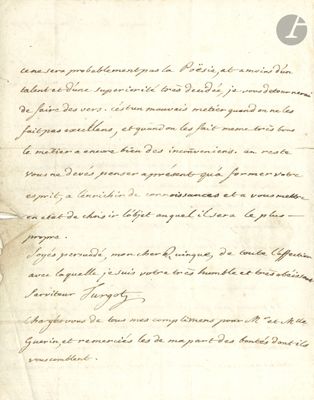 ce ne sera probablement pas la Poësie, et a moins d'un
talent et d'une superiorité très decidé, je vous detournerai
de faire des vers. c'est un mauvais metier quand on ne les
fait pas excellens, et quand on les fait meme très bons
le metier a encore bien des inconveniens. au reste
vous ne devés penser a présent qu'a former votre
esprit, a l'enrichir de connoissances et a vous mettre
en etat de choisir l'objet auquel il sera le plus
propre.
Soyés persuadé, mon cher de toute l'affection
avec laquelle je suis votre très humble et très obéissant
Serviteur Turgot
chargés vous de tous mes complimens pour Mr et Mlle
Guerin, et remerciés les de ma part des bontés dont ils
vous comblent.